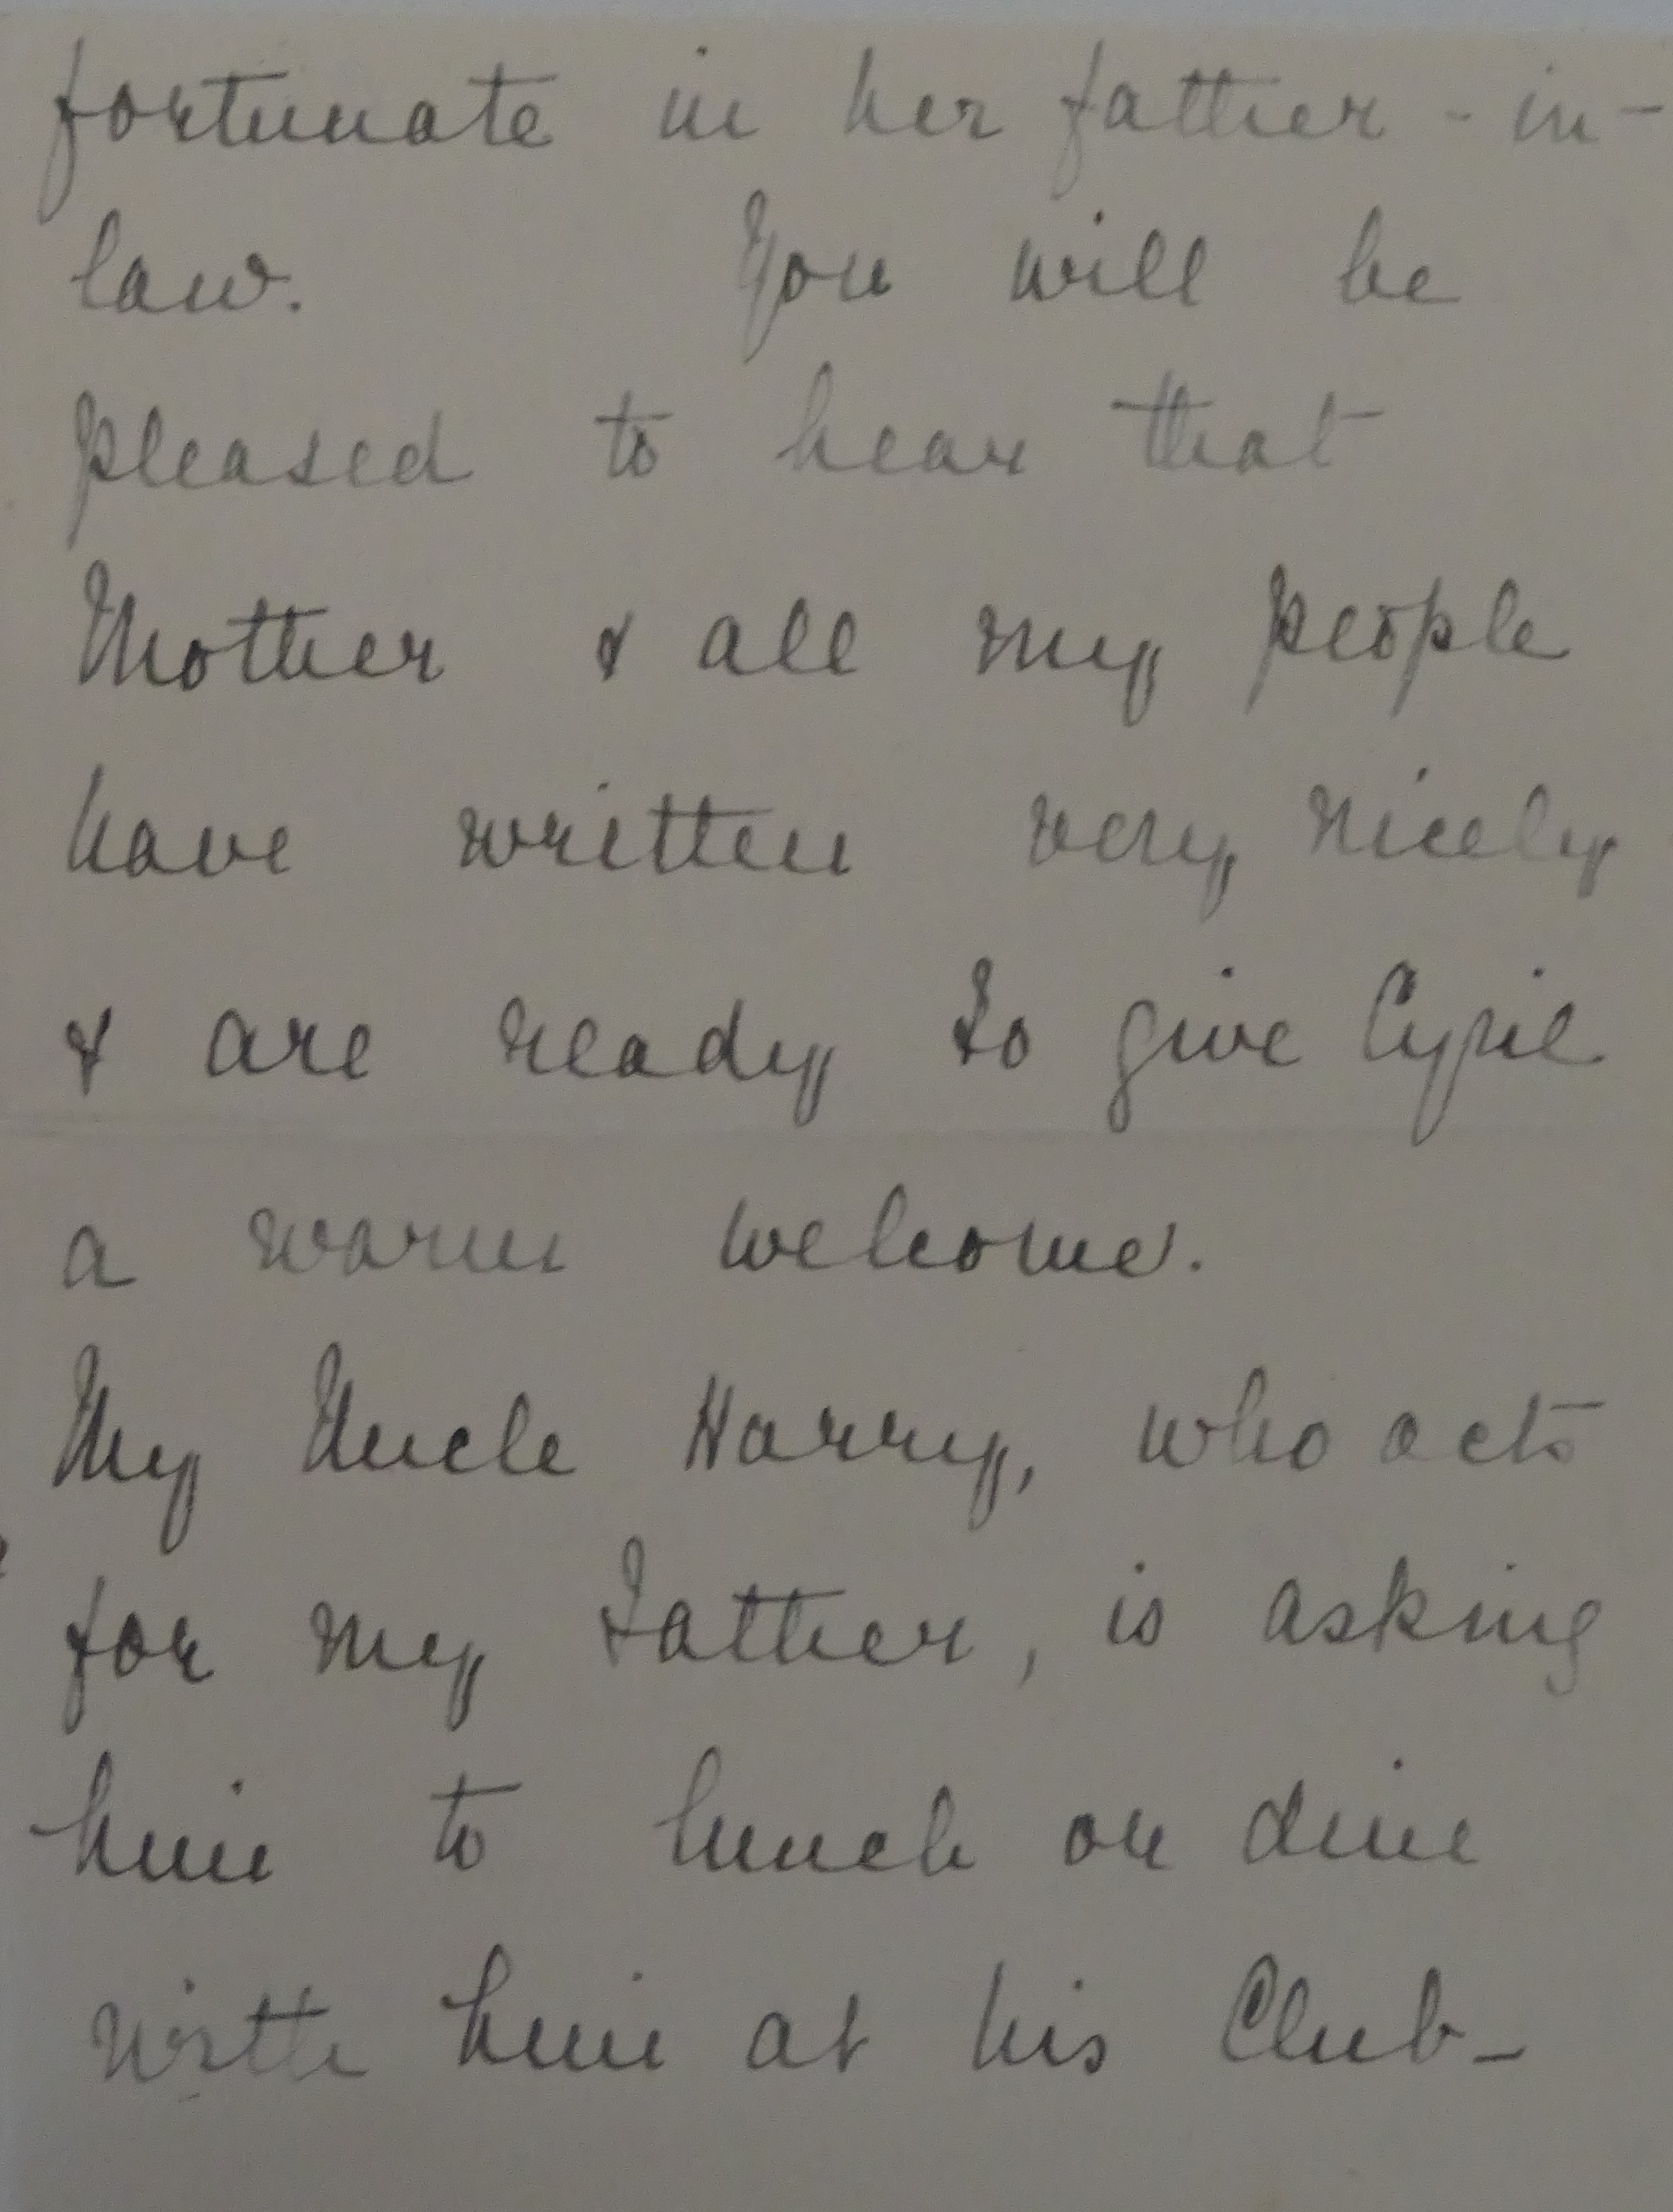 fortunate in her father-in-
law. You will be
pleased to hear that
Mother & all my people
have written very nicely
& are ready to give Cyril
a warm welcome.
My Uncle Harry, who acts
for my Father, is asking
him to lunch or dine
with him at his Club-